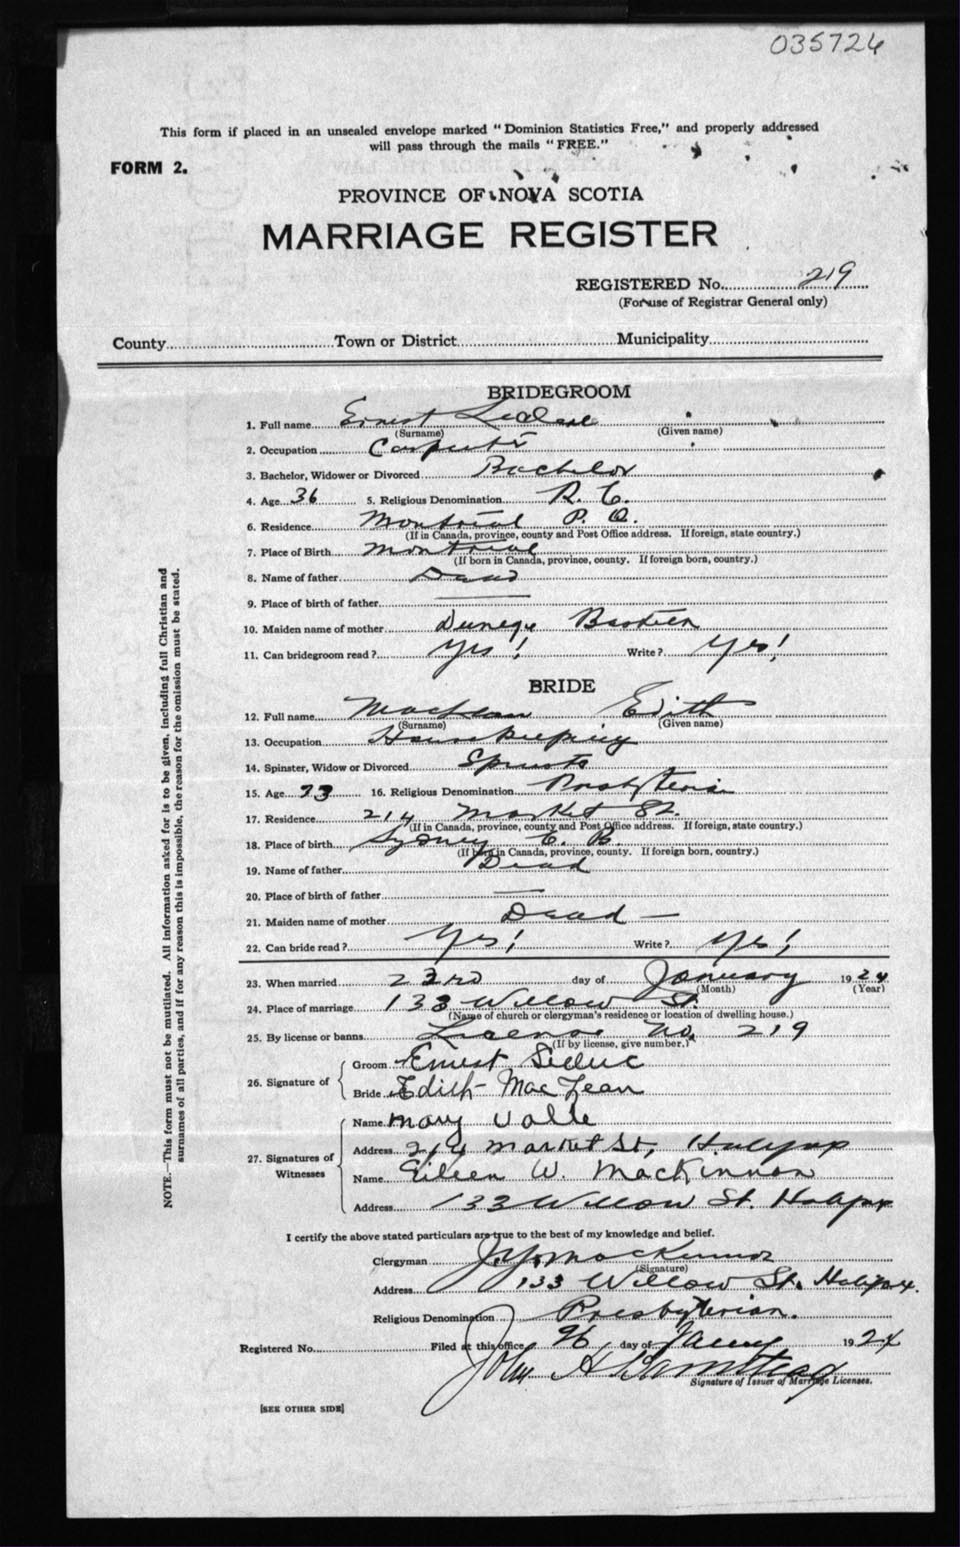 035726
This form if placed in an unsealed envelope marked "Dominion Statistics Free," and properly addressed
will pass through the mails "FREE."
FORM 2.
PROVINCE OF NOVA SCOTIA
MARRIAGE REGISTER
REGISTERED No. 219
(For use of Registrar General only)
County Town or District Municipality
BRIDEGROOM
1. Full name Ernest
(Surname) (Given name)
2. Occupation Carpenter
3. Bachelor, Widower or Divorced Bachelor
4. Age 36 5. Religious Denomination R. C.
6. Residence Montreal P. Q.
(If in Canada, province, county and Post Office address. If foreign, state country.)
7. Place of Birth Montreal
(If born in Canada, province, county. If foreign born, country.)
8. Name of father Dead
9. Place of birth of father
10. Maiden name of mother
11. Can bridegroom read? Yes! Write? Yes!
BRIDE
12. Full name MacLean Edith
(Surname) (Given name)
13. Occupation Housekeeping
14. Spinster, Widow or Divorced Spinster
15. Age 23 16. Religious Denomination Presbyterian
17. Residence 214 Market St.
(If in Canada, province, county and Post Office address. If foreign, state country.)
18. Place of birth Sydney C. B.
(If born in Canada, province, county. If foreign born, country.)
19. Name of father Dead
20. Place of birth of father —
21. Maiden name of mother Dead —
22. Can bride read? Yes! Write? Yes!
23. When married 23rd day of January 1924
(Month) (Year)
24. Place of marriage 133 Willow St.
(Name of church or clergyman's residence or location of dwelling house.)
25. By license or banns License No. 219
(If by license, give number.)
26. Signature of Groom Ernest Leduc
Bride Edith MacLean
27. Signatures of Witnesses Name Mary Valle
Address 214 Market St, Halifax
Name Eileen W. MacKinnon
Address 133 Willow St. Halifax
I certify the above stated particulars are true to the best of my knowledge and belief.
Clergyman MacKinnon
(Signature)
Address 133 Willow St. Halifax.
Religious Denomination Presbyterian.
Registered No. Filed at this office 26 day of Jany 1924
John A
Signature of Issuer of Marriage Licenses.
[SEE OTHER SIDE]
NOTE.—This form must not be mutilated. All information asked for is to be given, including full Christian and
surnames of all parties, and if for any reason this is impossible, the reason for the omission must be stated.